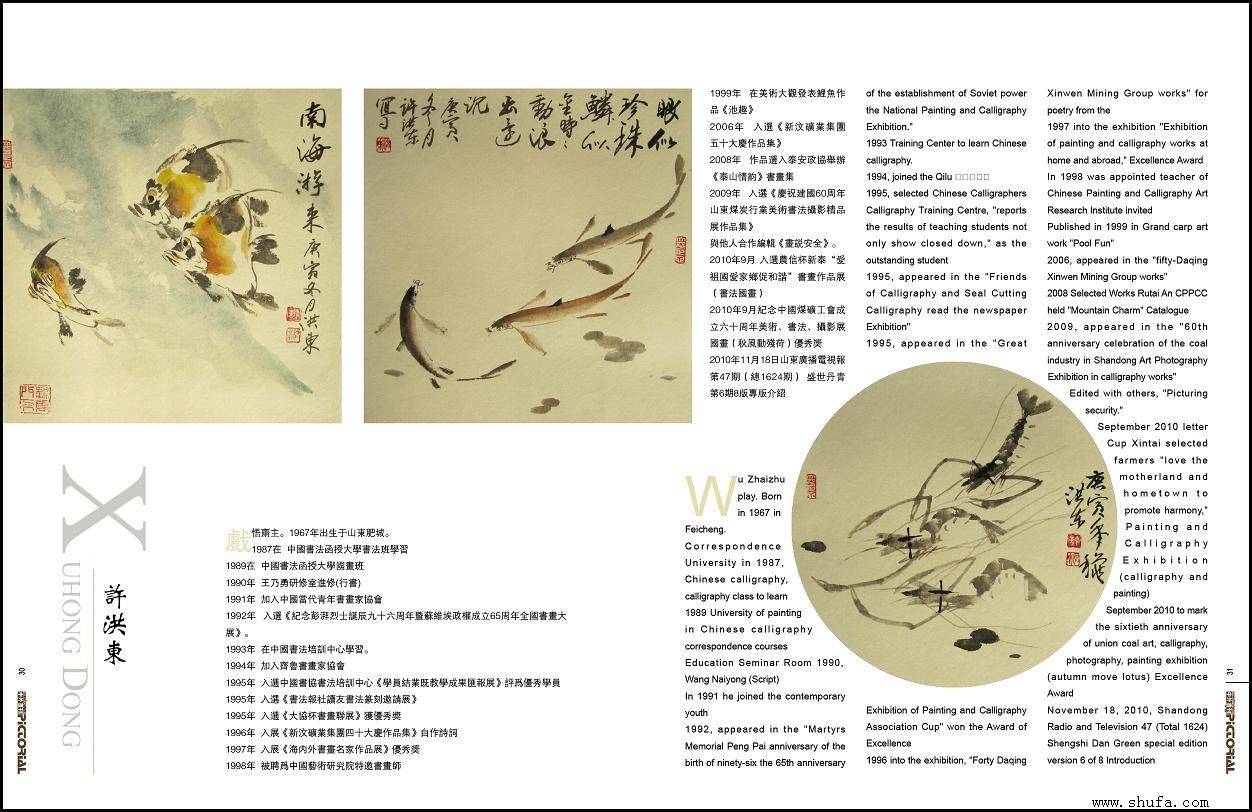 南海游來庚寅冬月洪東
眼似
珍珠
鱗似
金時時
動浪
出遠
沉
庚寅
冬月
許洪東
寫
X
UHONG DONG
許洪東
30
PICTORIAL
戲悟齋主。1967年出生于山東肥城。
1987在 中國書法函授大學書法班學習
1989在 中國書法函授大學國畫班
1990年 王乃勇研修室進修(行書)
1991年 加入中國當代青年書畫家協會
1992年 入選《紀念彭湃烈士誕辰九十六周年暨蘇維埃政權成立65周年全國書畫大
展》。
1993年 在中國書法培訓中心學習。
1994年 加入齊魯書畫家協會
1995年 入選中國書協書法培訓中心《學員結業既教學成果匯報展》評爲優秀學員
1995年 入選《書法報社讀友書法篆刻邀請展》
1995年 入選《大協杯書畫聯展》獲優秀獎
1996年 入展《新汶礦業集團四十大慶作品集》自作詩詞
1997年 入展《海内外書畫名家作品展》優秀獎
1998年 被聘爲中國藝術研究院特邀書畫師
1999年 在美術大觀發表鯉魚作
品《池趣》
2006年 入選《新汶礦業集團
五十大慶作品集》
2008年 作品選入泰安政協舉辦
《泰山情韵》書畫集
2009年 入選《慶祝建國60周年
山東煤炭行業美術書法攝影精品
展作品集》
與他人合作編輯《畫説安全》。
2010年9月 入選農信杯新泰“愛
祖國愛家鄉促和諧”書畫作品展
（書法國畫）
2010年9月紀念中國煤礦工會成
立六十周年美術、書法、攝影展
國畫（秋風動殘荷）優秀獎
2010年11月18日山東廣播電視報
第47期（總1624期） 盛世丹青
第6期8版專版介紹
Wu Zhaizhu
play. Born
in 1967 in
Feicheng.
Correspondence
University in 1987,
Chinese calligraphy,
calligraphy class to learn
1989 University of painting
in Chinese calligraphy
correspondence courses
Education Seminar Room 1990,
Wang Naiyong (Script)
In 1991 he joined the contemporary
youth
1992, appeared in the "Martyrs
Memorial Peng Pai anniversary of the
birth of ninety-six the 65th anniversary
of the establishment of Soviet power
the National Painting and Calligraphy
Exhibition."
1993 Training Center to learn Chinese
calligraphy.
1994, joined the Qilu □□□□□
1995, selected Chinese Calligraphers
Calligraphy Training Centre, "reports
the results of teaching students not
only show closed down," as the
outstanding student
1995, appeared in the "Friends
of Calligraphy and Seal Cutting
Calligraphy read the newspaper
Exhibition"
1995, appeared in the "Great
Exhibition of Painting and Calligraphy
Association Cup" won the Award of
Excellence
1996 into the exhibition, "Forty Daqing
Xinwen Mining Group works" for
poetry from the
1997 into the exhibition "Exhibition
of painting and calligraphy works at
home and abroad," Excellence Award
In 1998 was appointed teacher of
Chinese Painting and Calligraphy Art
Research Institute invited
Published in 1999 in Grand carp art
work "Pool Fun"
2006, appeared in the "fifty-Daqing
Xinwen Mining Group works"
2008 Selected Works Rutai An CPPCC
held "Mountain Charm" Catalogue
2009, appeared in the "60th
anniversary celebration of the coal
industry in Shandong Art Photography
Exhibition in calligraphy works"
Edited with others, "Picturing
security."
September 2010 letter
Cup Xintai selected
farmers "love the
motherland and
hometown to
promote harmony,"
Painting and
Calligraphy
Exhibition
(calligraphy and
painting)
September 2010 to mark
the sixtieth anniversary
of union coal art, calligraphy,
photography, painting exhibition
(autumn move lotus) Excellence
Award
November 18, 2010, Shandong
Radio and Television 47 (Total 1624)
Shengshi Dan Green special edition
version 6 of 8 Introduction
庚寅年
洪東
31
PICTORIAL
www.shufa.com